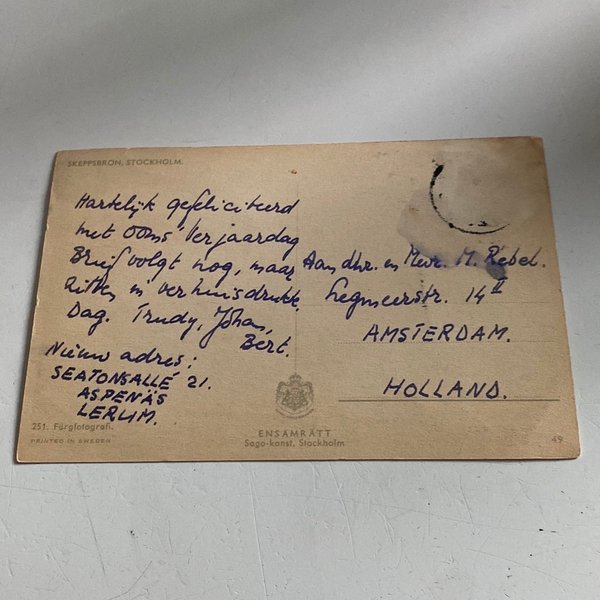 SKEPPSBRON, STOCKHOLM.
Hartelijk gefeliciteerd
met ooms verjaardag
Brief volgt nog, maar
zitten in verhuisdrukte.
Dag. Trudy, Johan,
Bert.
Nieuw adres:
SEATONSALLÉ 21.
ASPENÄS
LERUM.
Aan dhr. en Mevr. M. Rebel.
Legmeerstr. 14 II
AMSTERDAM.
HOLLAND.
251. Färgfotografi.
PRINTED IN SWEDEN
ENSAMRÄTT
Sago-konst, Stockholm
49